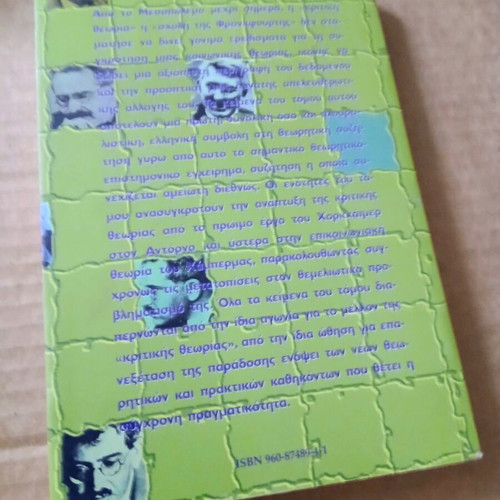 Από το Μεσοπόλεμο μέχρι σήμερα, η "κριτική
θεωρία" ή "σχολή της Φρανκφούρτης" δεν στα-
μάτησε να δίνει γόνιμα ερεθίσματα για τη συ-
γκρότηση μιας κοινωνικής θεωρίας, ικανής να
δώσει μια αξιόπιστη περιγραφή του δεδομένου
και την προοπτική της δυνατής απελευθερωτι-
κής αλλαγής του. Τα κείμενα του τόμου αυτού
αποτελούν μια πρώτη συνολική όσο και πλουρα-
λιστική, ελληνική συμβολή στη θεωρητική συζή-
τηση γύρω από αυτό το σημαντικό θεωρητικο-
επιστημονικό εγχείρημα, συζήτηση η οποία συ-
νεχίζεται αμείωτη διεθνώς. Οι ενότητες του τό-
μου ανασυγκροτούν την ανάπτυξη της κριτικής
θεωρίας από το πρώιμο έργο του Χορκχάιμερ
στον Αντόρνο και ύστερα στην επικοινωνιακή
θεωρία του Χάμπερμας, παρακολουθώντας συγ-
χρόνως τις μετατοπίσεις στον θεμελιώτικο προ-
βληματισμό της. Όλα τα κείμενα του τόμου δια-
περνώνται από την ίδια αγωνία για το μέλλον της
«κριτικής θεωρίας», από την ίδια ώθηση για επα-
νεξέταση της παράδοσης ενόψει των νέων θεω-
ρητικών και πρακτικών καθηκόντων που θέτει η
σύγχρονη πραγματικότητα.
ISBN 960-87489-4-1